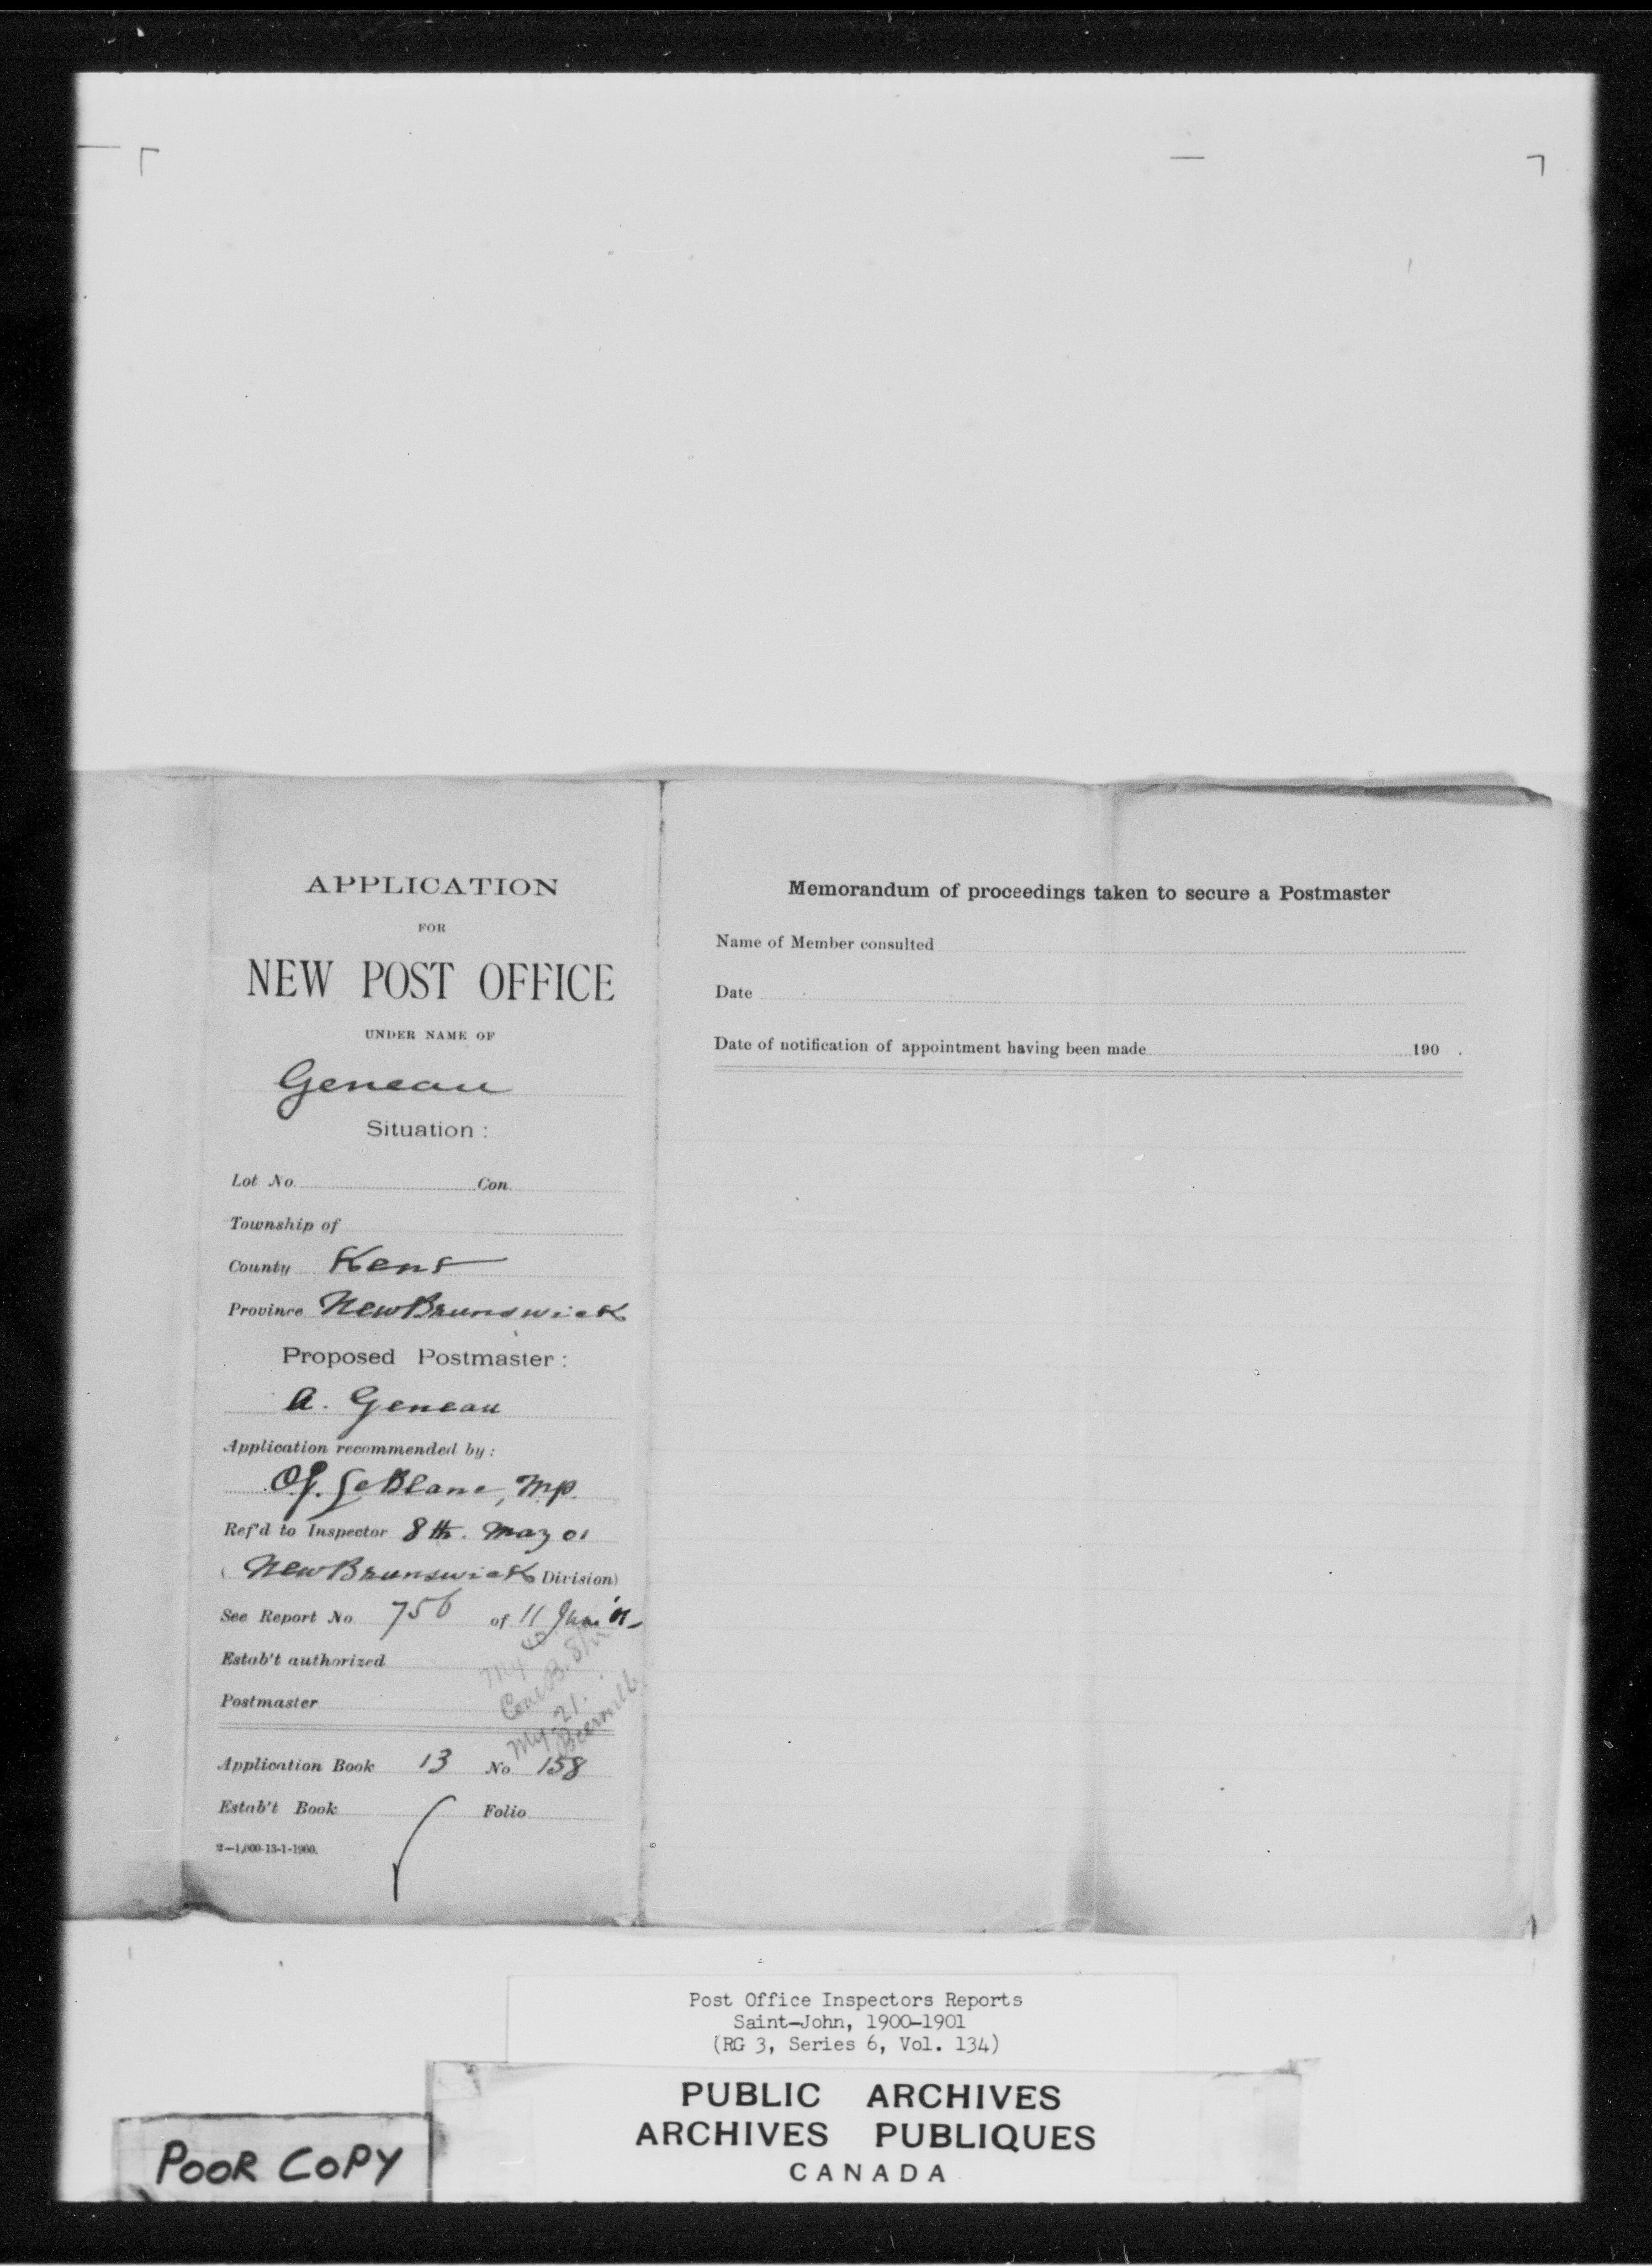 APPLICATION
FOR
NEW POST OFFICE
UNDER NAME OF
Geneau
Situation :
Lot No. Con.
Township of
County Kent
Province New Brunswick
Proposed Postmaster :
A. Geneau
Application recommended by :
O.J. LeBlanc, M.P.
Ref'd to Inspector 8th. May 01
( New Brunswick Division)
See Report No. 756 of 11 June '01
Estab't authorized
Postmaster
My 21.
Application Book 13 No. 158
Estab't Book Folio
2—1,000-13-1-1900.
Memorandum of proceedings taken to secure a Postmaster
Name of Member consulted
Date
Date of notification of appointment having been made 190 .
Post Office Inspectors Reports
Saint-John, 1900-1901
(RG 3, Series 6, Vol. 134)
PUBLIC ARCHIVES
ARCHIVES PUBLIQUES
CANADA
POOR COPY